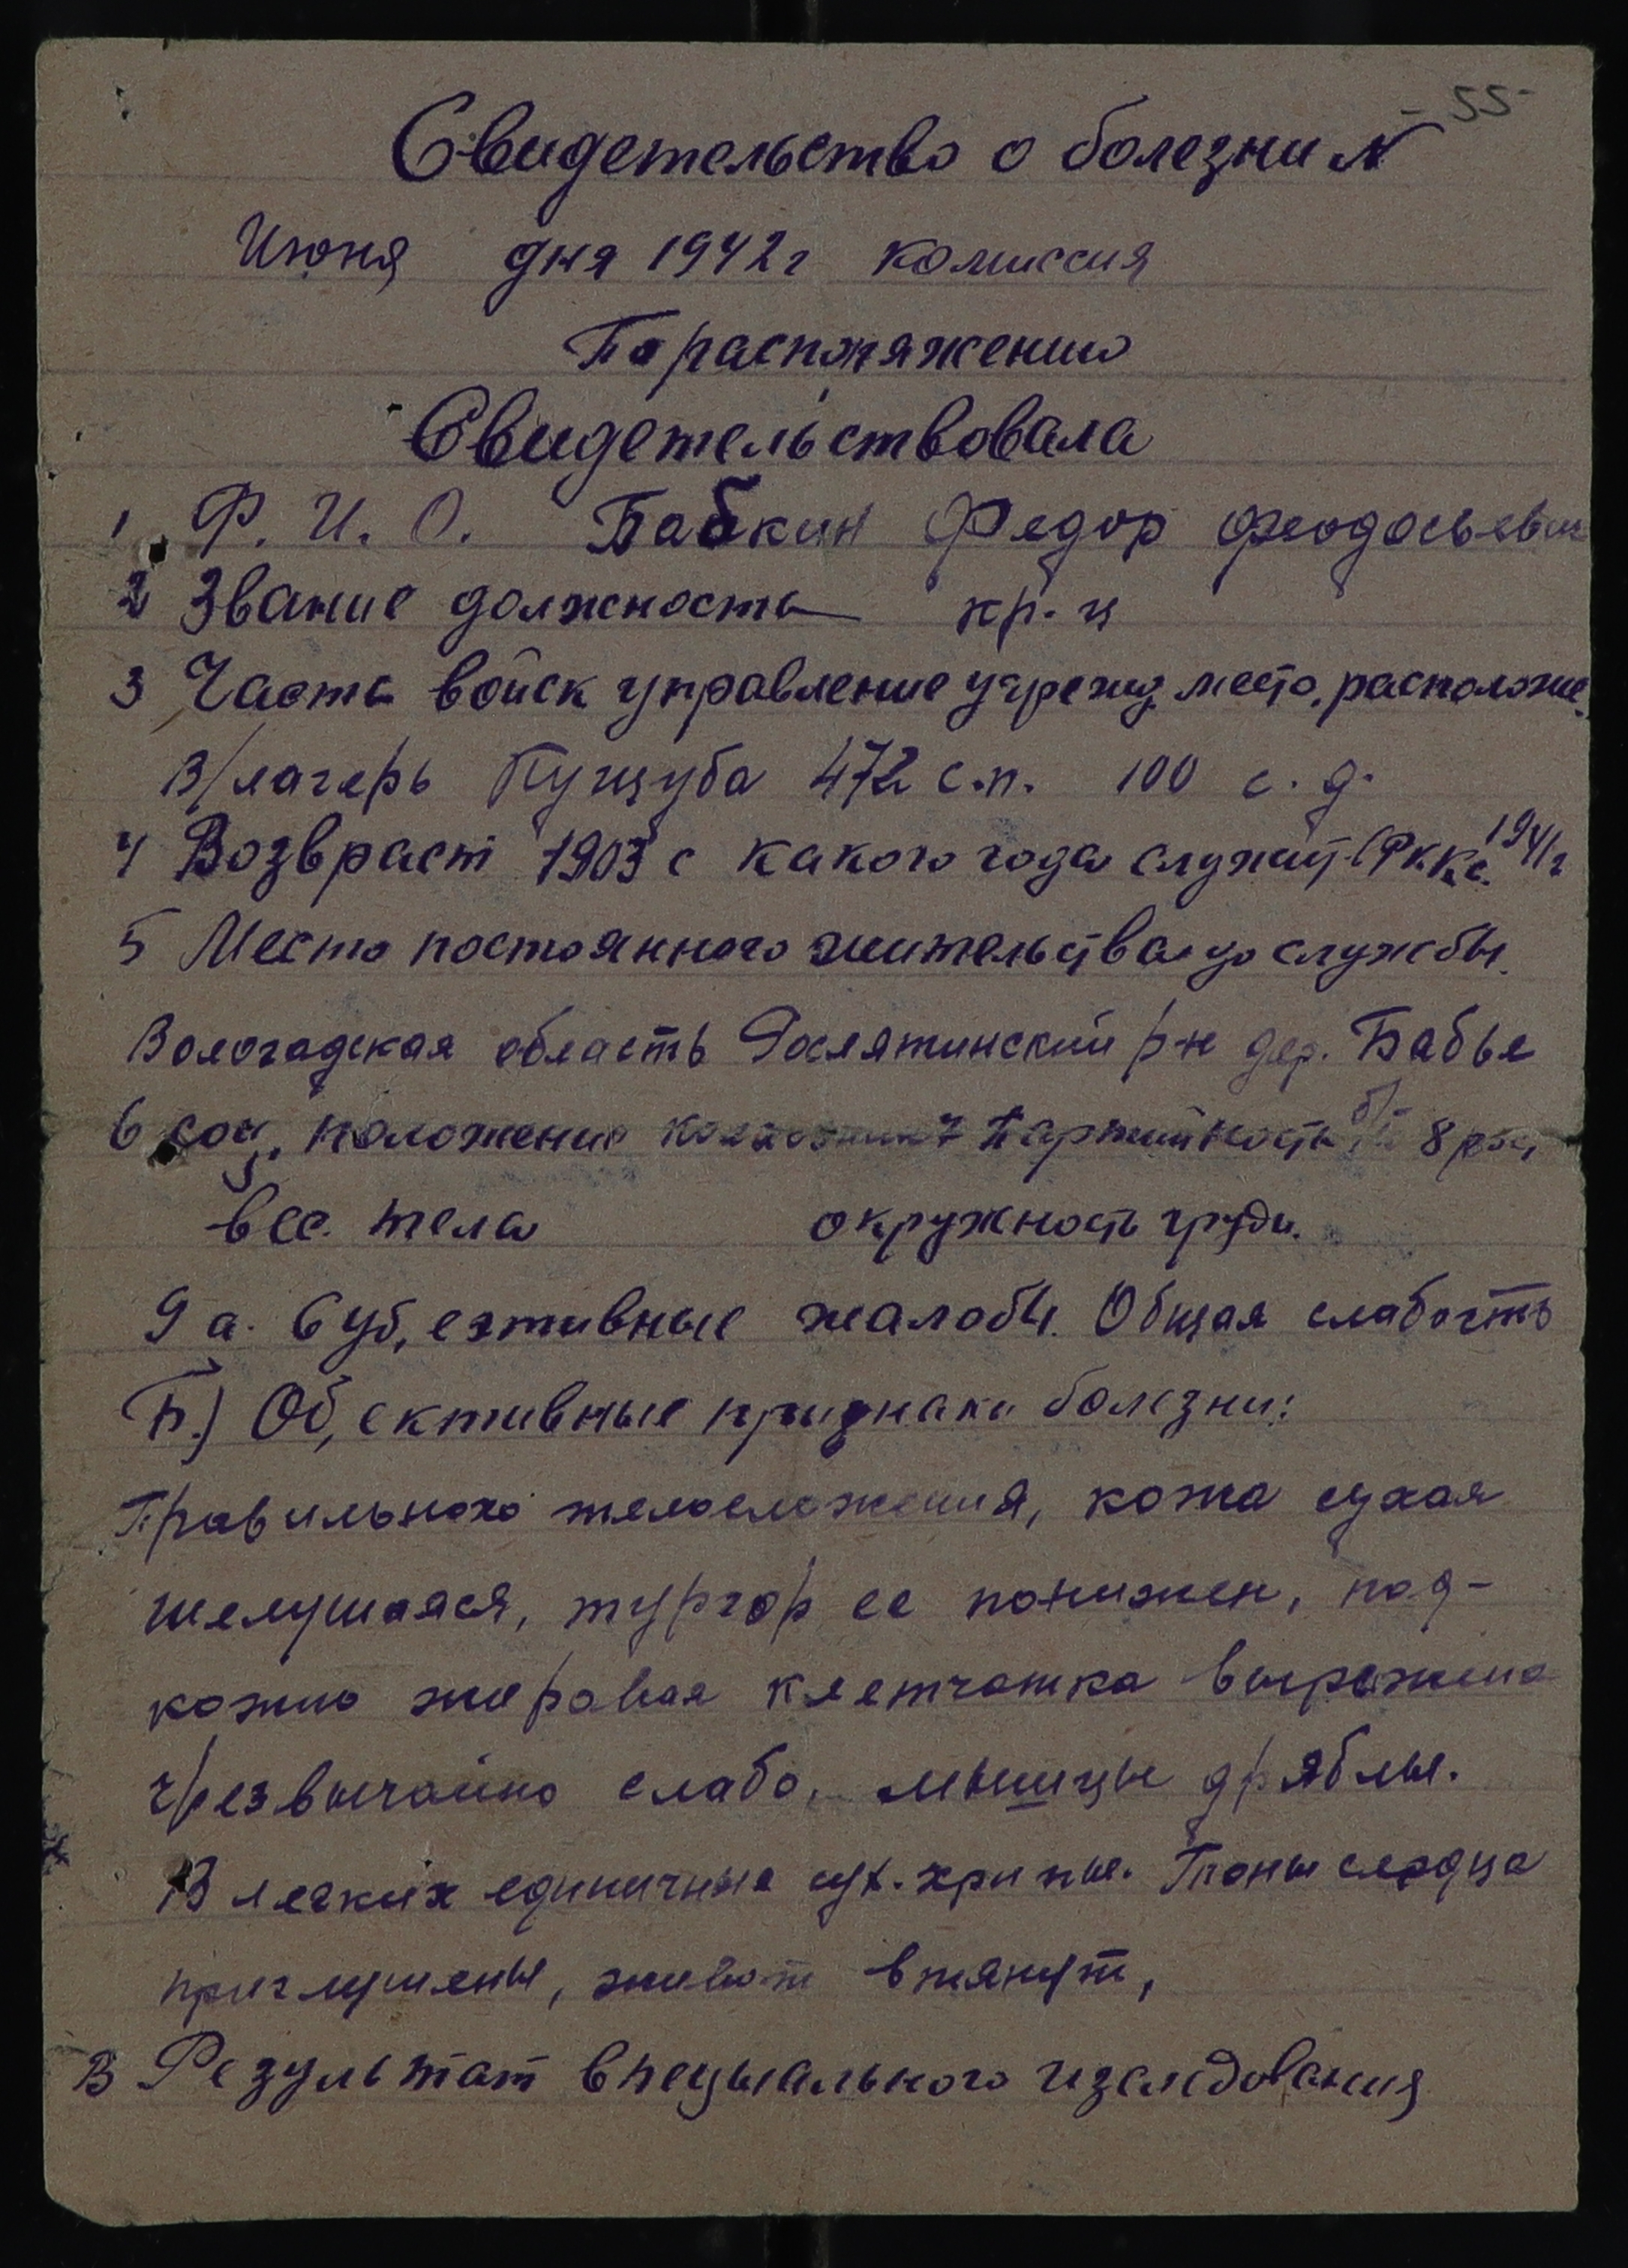 - 55 -
Свидетельство о болезни N
Июня дня 1942г комиссия
По распоряжению
Свидетельствовала
1 Ф. И. О. Бабкин Федор Феодосьевич
2 Звание должность кр-ц
3 Часть войск управление учрежд место, расположе.
В/лагерь Пундуба 472 с.п. 100 с. д.
4 Возвраст 1903 с какого года служит РККА. 1941г
5 Место постоянного жительства до службы.
Вологадская область Рослятинский р-н дер. Бабье
6 соц. положение партийность б/п 8 рост
вес тела окружность груди.
9 а. Суб,ективные жалобы. Общая слабость
Б.) Об,ективные признаки болезни:
Правильного телосложения, кожа сухая
шелушаяся, тургор ее понижен, под-
кожно жировая клетчатка выражена
чрезвычайно слабо, мышцы дряблы.
В легких единичные сух. хрипы. Тоны сердца
приглушены, живот втянут,
В Результат впецыального изследования